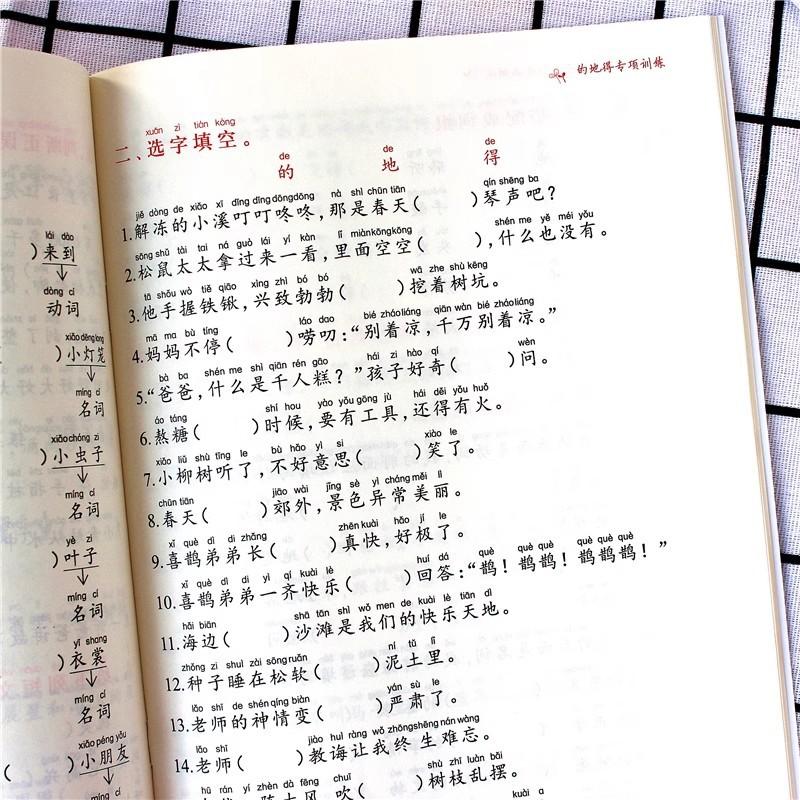 的地得专项训练
xuǎn zì tián kòng
二、选字填空。
de de de
的 地 得
jiě dòng de xiǎo xī dīng dīng dōng dōng nà shì chūn tiān qín shēng ba
1.解冻的小溪叮叮咚咚，那是春天( )琴声吧？
sōng shǔ tài tai ná guò lái yí kàn lǐ miàn kōng kōng shén me yě méi yǒu
2.松鼠太太拿过来一看，里面空空( )，什么也没有。
tā shǒu wò tiě qiāo xìng zhì bó bó wā zhe shù kēng
3.他手握铁锹，兴致勃勃( )挖着树坑。
mā ma bù tíng láo dao bié zháo liáng qiān wàn bié zháo liáng
4.妈妈不停( )唠叨：“别着凉，千万别着凉。”
bà ba shén me shì qiān rén gāo hái zi hào qí wèn
5.“爸爸，什么是千人糕？”孩子好奇( )问。
áo táng shí hou yào yǒu gōng jù hái děi yǒu huǒ
6.熬糖( )时候，要有工具，还得有火。
xiǎo liǔ shù tīng le bù hǎo yì si xiào le
7.小柳树听了，不好意思( )笑了。
chūn tiān jiāo wài jǐng sè yì cháng měi lì
8.春天( )郊外，景色异常美丽。
xǐ què dì di zhǎng zhēn kuài hǎo jí le
9.喜鹊弟弟长( )真快，好极了。
xǐ què dì di yì qí kuài lè huí dá què què què què què
10.喜鹊弟弟一齐快乐( )回答：“鹊！鹊鹊！鹊鹊鹊！”
hǎi biān shā tān shì wǒ men de kuài lè tiān dì
11.海边( )沙滩是我们的快乐天地。
zhǒng zi shuì zài sōng ruǎn ní tǔ lǐ
12.种子睡在松软( )泥土里。
lǎo shī de shén qíng biàn yán sù le
13.老师的神情变( )严肃了。
lǎo shī jiào huì ràng wǒ zhōng shēng nán wàng
14.老师( )教诲让我终生难忘。
yí zhèn dà fēng chuī shù zhī luàn bǎi
吹( )树枝乱摆。
lái dào
)来到
dòng cí
动词
xiǎo dēng long
)小灯笼
míng cí
名词
xiǎo chóng zi
)小虫子
míng cí
名词
yè zi
)叶子
míng cí
名词
yī shang
)衣裳
míng cí
名词
xiǎo péng yǒu
( )小朋友